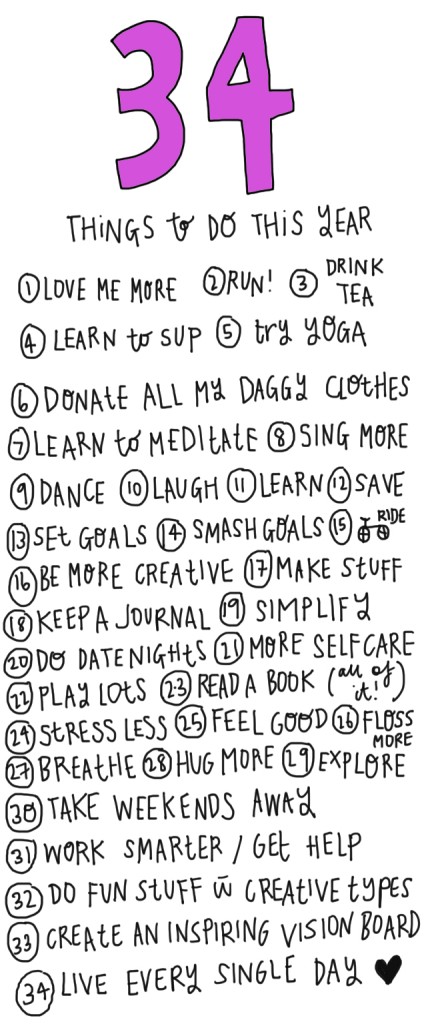 34
THINGS to DO THIS YEAR
1 LOVE ME MORE 2 RUN! 3 DRINK TEA
4 LEARN to SUP 5 try YOGA
6 DONATE ALL MY DAGGY CLOTHES
7 LEARN to MEDITATE 8 SING MORE
9 DANCE 10 LAUGH 11 LEARN 12 SAVE
13 SET GOALS 14 SMASH GOALS 15 RIDE
16 BE MORE CREATIVE 17 MAKE STUFF
18 KEEP A JOURNAL 19 SIMPLIFY
20 DO DATE NIGHTS 21 MORE SELFCARE
22 PLAY LOTS 23 READ A BOOK (all of it!)
24 STRESS LESS 25 FEEL GOOD 26 FLOSS MORE
27 BREATHE 28 HUG MORE 29 EXPLORE
30 TAKE WEEKENDS AWAY
31 WORK SMARTER / GET HELP
32 DO FUN STUFF w̄ CREATIVE TYPES
33 CREATE AN INSPIRING VISION BOARD
34 LIVE EVERY SINGLE DAY ♥